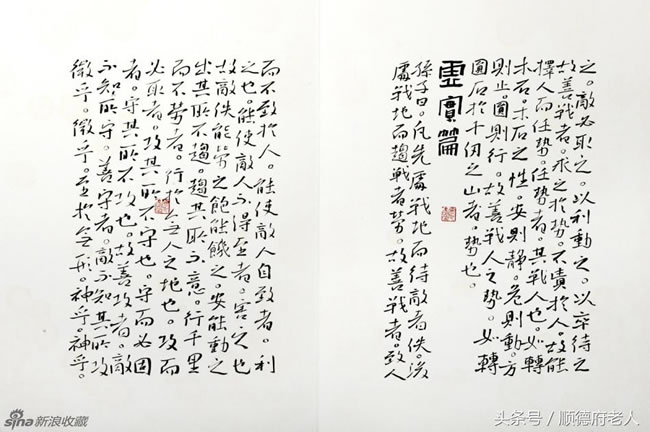 之。敵必取之。以利動之。以卒待之
故善戰者。求之於勢。不責於人。故能
擇人而任勢。任勢者。其戰人也。如轉
木石。木石之性。安則靜。危則動。方
則止。圓則行。故善戰人之勢。如轉
圓石於千仞之山者。勢也。
虛實篇
孫子曰。凡先處戰地而待敵者佚。後
處戰地而趨戰者勞。故善戰者。致人
而不致於人。能使敵人自致者。利
之也。能使敵人不得至者。害之也
故敵佚能勞之。飽能饑之。安能動之
出其所不趨。趨其所不意。行千里
而不勞者。行於无人之地也。攻而
必取者。攻其所不守也。守而必固
者。守其所不攻也。故善攻者。敵
不知所守。善守者。敵不知其所攻
微乎。微乎。至於无形。神乎。神乎。
sina新浪收藏
头条号 / 顺德府老人